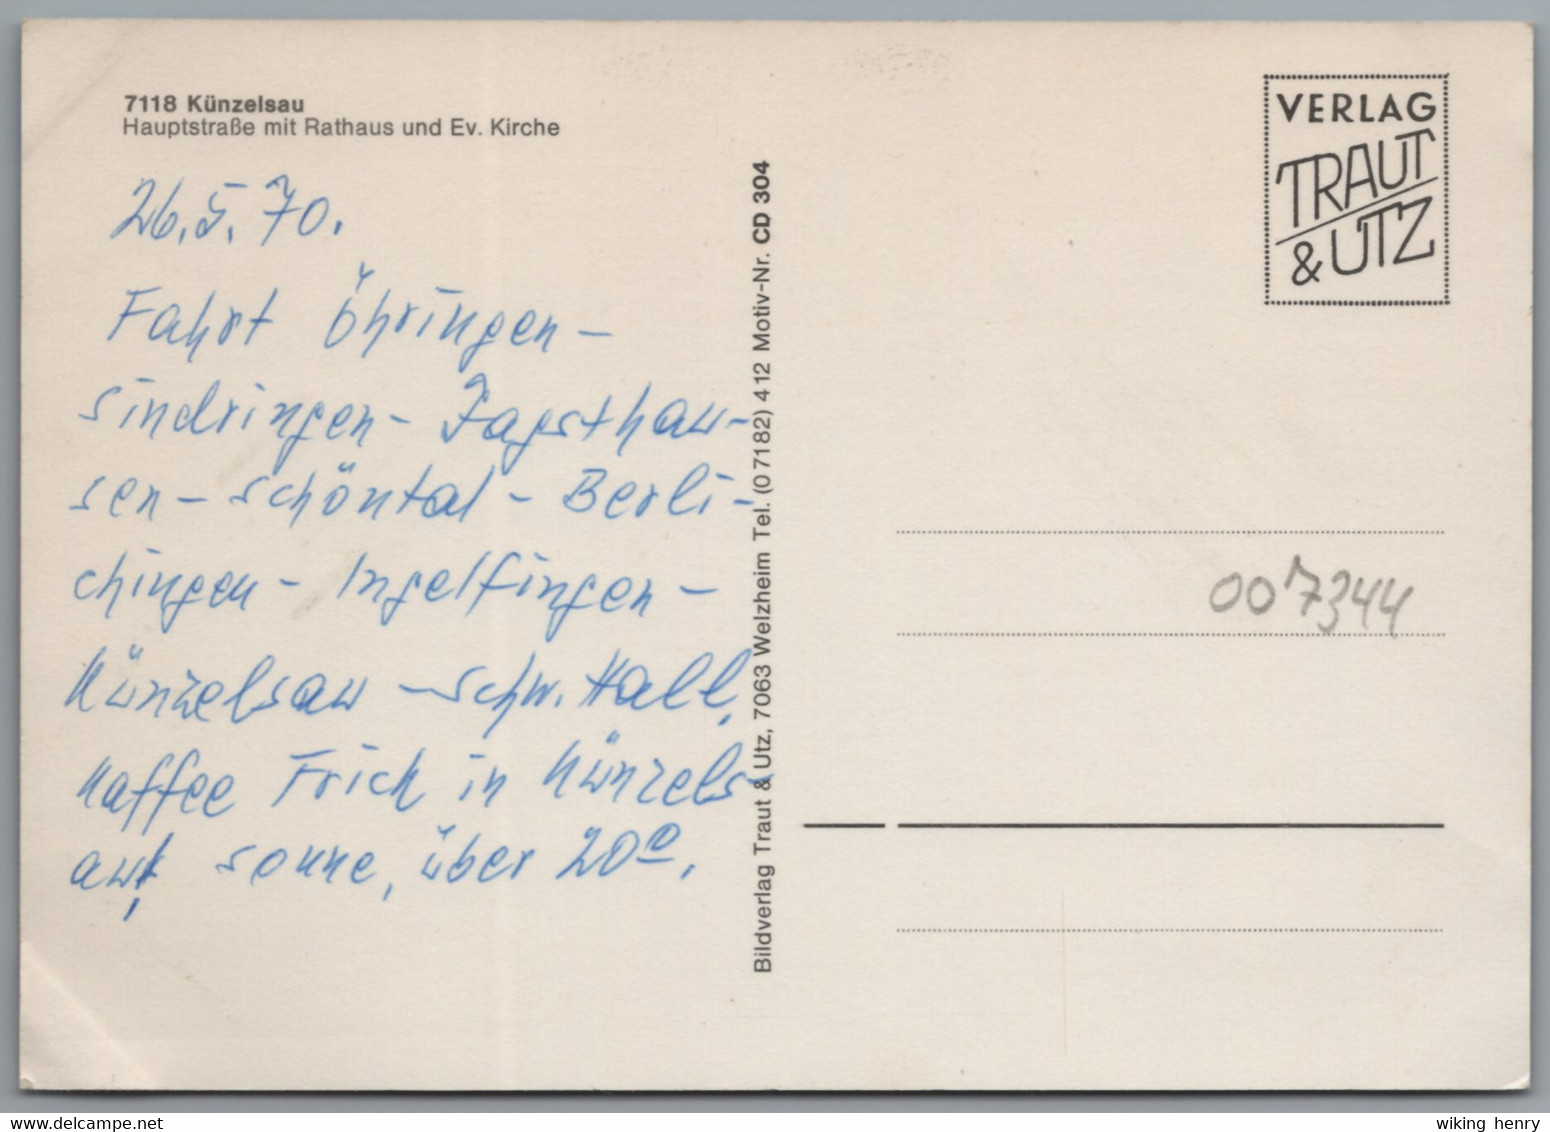 7118 Künzelsau
Hauptstraße mit Rathaus und Ev. Kirche
26.5.70.
Fahrt Öhringen-
Sindringen- Jagsthau-
sen- Schöntal- Berli-
chingen- Ingelfingen-
Künzelsau - Schw. Hall,
Kaffee Frick in Künzels-
au, Sonne, über 20⁰.
Bildverlag Traut & Utz, 7063 Welzheim Tel. (0 71 82) 4 12 Motiv-Nr. CD 304
VERLAG
TRAUT
& UTZ
007344
wiking henry